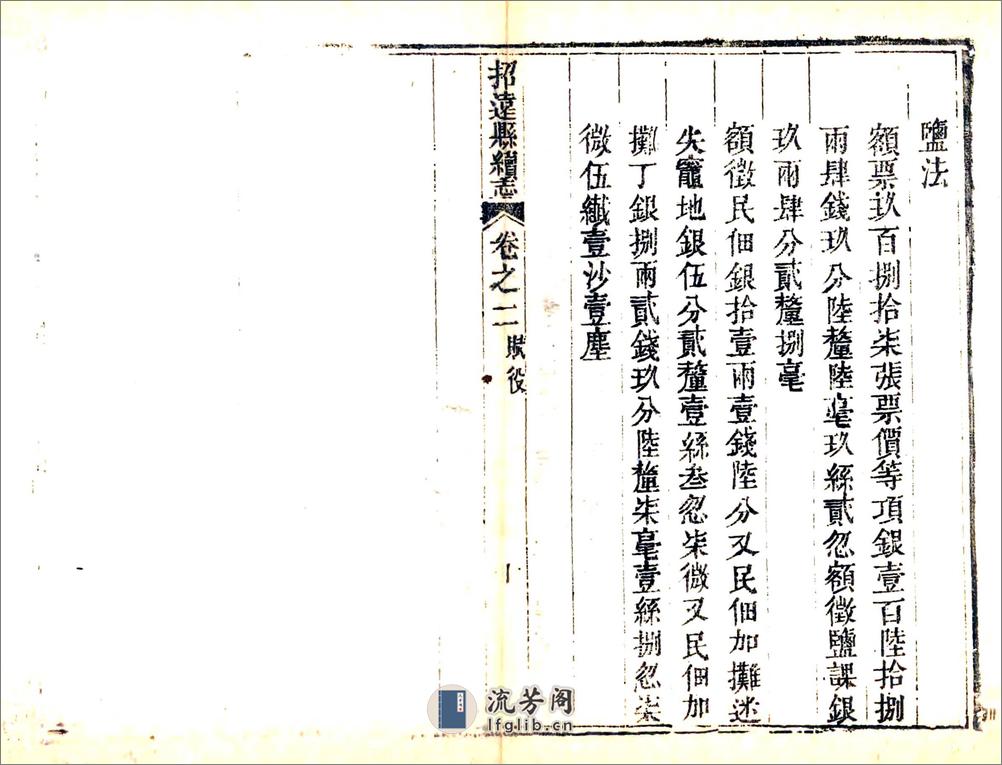 鹽法
額票玖百捌拾柒張票價等項銀壹百陸拾捌
兩肆錢玖分陸釐陸毫玖絲貳忽額徵鹽課銀
玖兩肆分貳釐捌毫
額徵民佃銀拾壹兩壹錢陸分又民佃加攤迷
失竈地銀伍分貳釐壹絲叁忽柒微又民佃加
攤丁銀捌兩貳錢玖分陸釐柒毫壹絲捌忽柒
微伍纖壹沙壹塵
招遠縣續志 卷之二 賦役 一
流芳阁
lfglib.cn